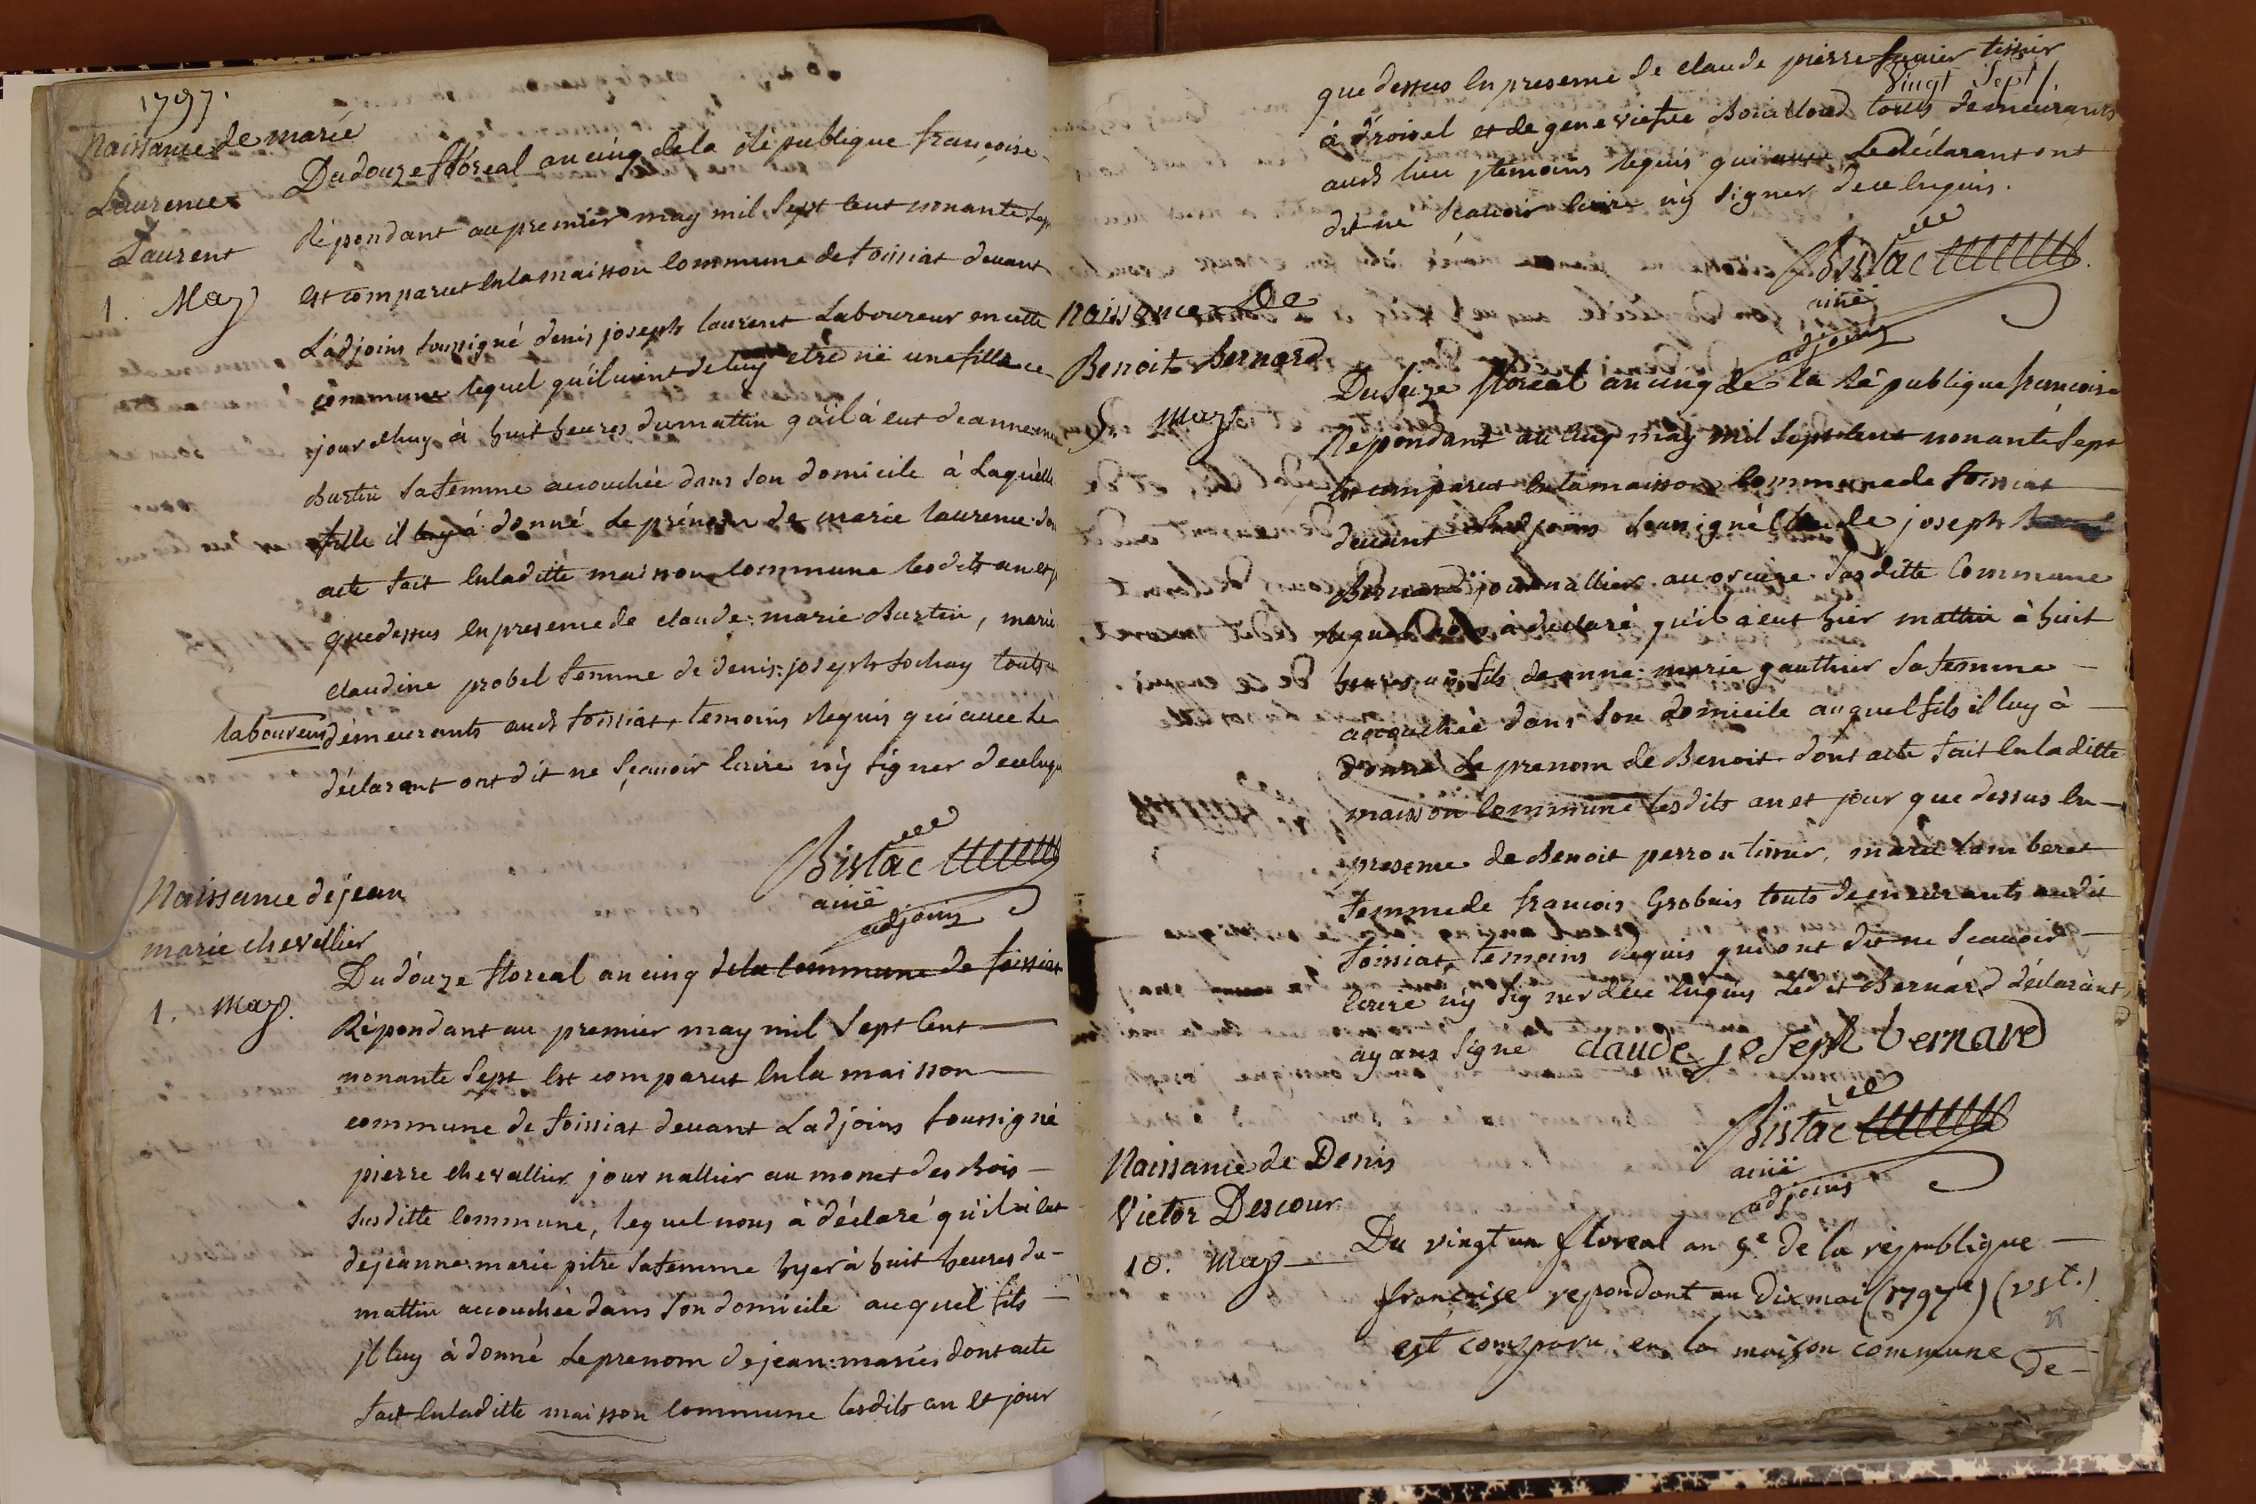 1797.
Naissance de marie
Laurence
Laurent
1. May
Du douze floreal an cinq de la Republique françoise
Répondant au premier may mil sept cent nonante sept
est comparut en la maison commune de foissiat devant
L'adjoins soussigné denis joseph laurent Laboureur en cette
commune lequel qu'il vient de luy etre né une fille ce
jour d'huy à huit heures du mattin qu'il à eut de anne
Burtin sa femme accouchée dans son domicile à Laquelle
fille il luy à donné le prénom de marie laurence dont
acte fait en la ditte maison commune les dits an et
que dessus en presence de claude: marie Burtin, marie
claudine probel femme de denis: joseph sochay touts
laboureurs demeurants aud foissiat, temoins requis qui avec le
déclarant ont dit ne sçavoir écrire ny signer de ce enquis
Bistac
ainé
adjoins
Naissance de jean
marie chevallier
1. May.
Du douze floreal an cinq de la commune de foissiat
Répondant au premier may mil sept cent
nonante sept est comparut en la maison
commune de foissiat devant L'adjoins soussigné
pierre chevallier journallier au monet des bois
susditte commune, lequel nous à déclaré qu'il à eut
de jeanne: marie pitre sa femme hyer à huit heures du
mattin accouchée dans son domicile auquel fils
il luy à donné le prenom de jean: marie dont acte
fait en la ditte maison commune les dits an et jour
que dessus en presence de claude pierre tissier
Vingt Sept
à droisel et de genevieve Boiclloud touts demeurants
aud lieu temoins requis qui avec Le déclarant ont
dit ne scavoir écrire ny signer de ce enquis.
Bistac
ainé
adjoins
Naissance De
Benoit Bernard
5. May
Du seize floreal an cinq de la République francoise
Répondant au cinq may mil sept cent nonante sept
est comparut en la maison commune de foissiat
devant L'adjoins soussigné Claude joseph
Bernard journallier au susditte Commune
lequel nous à déclaré qu'il à eut hier mattin à huit
heures un fils de anne: marie gauthier sa femme
accouchée dans son domicile auquel fils il luy à
donné le prenom de Benoit dont acte fait en la ditte
maison commune les dits an et jour que dessus en
presence de Benoit perron tissier, marie lamberet
femme de francois Grobuis touts demeurants audit
foissiat, temoins requis qui ont dit ne scavoir
écrire ny signer de ce enquis Ledit Bernard déclarant
ayans signé claude joseph bernard
Bistac
ainé
adjoins
Naissance de Denis
Victor Descour
10. May
Du vingt un floreal an 5e de la république
française repondant au Dix mai (1797) (vst.)
est comparu en la maison commune
de